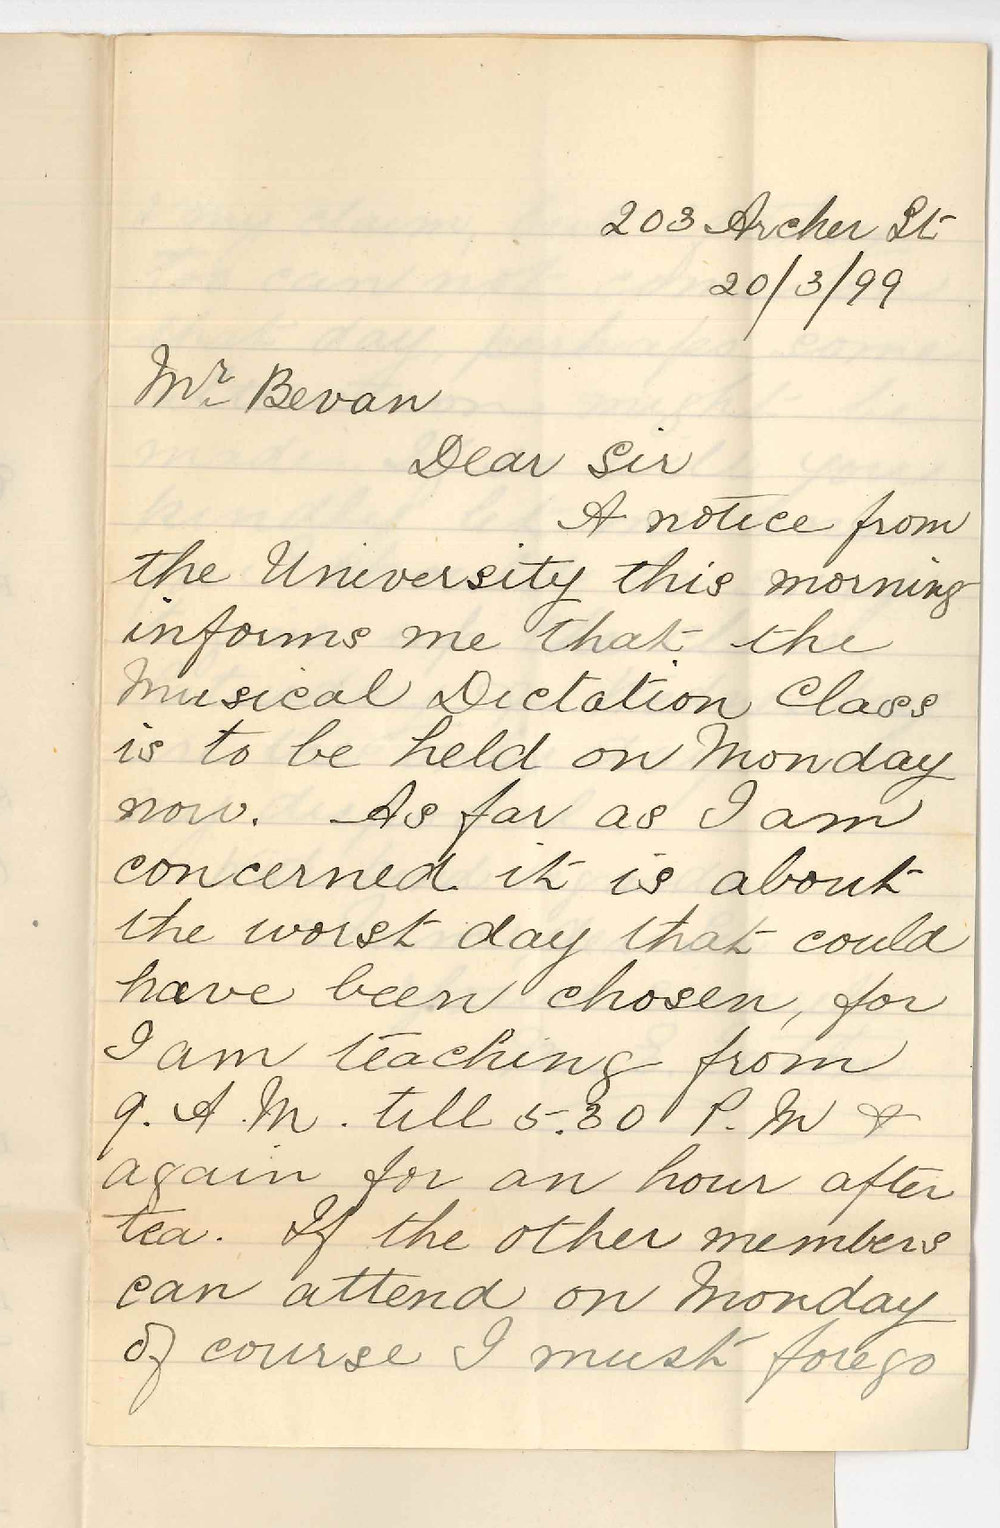 203 Archer St
20/3/99
Mr. Bevan
Dear Sir
A notice from
the University this morning
informs me that the
Musical Dictation Class
is to be held on Monday
now. As far as I am
concerned it is about
the worst day that could
have been chosen, for
I am teaching from
9. A.M. till 5.30 P.M &
again for an hour after
tea. If the other members
can attend on Monday
of course I must forego